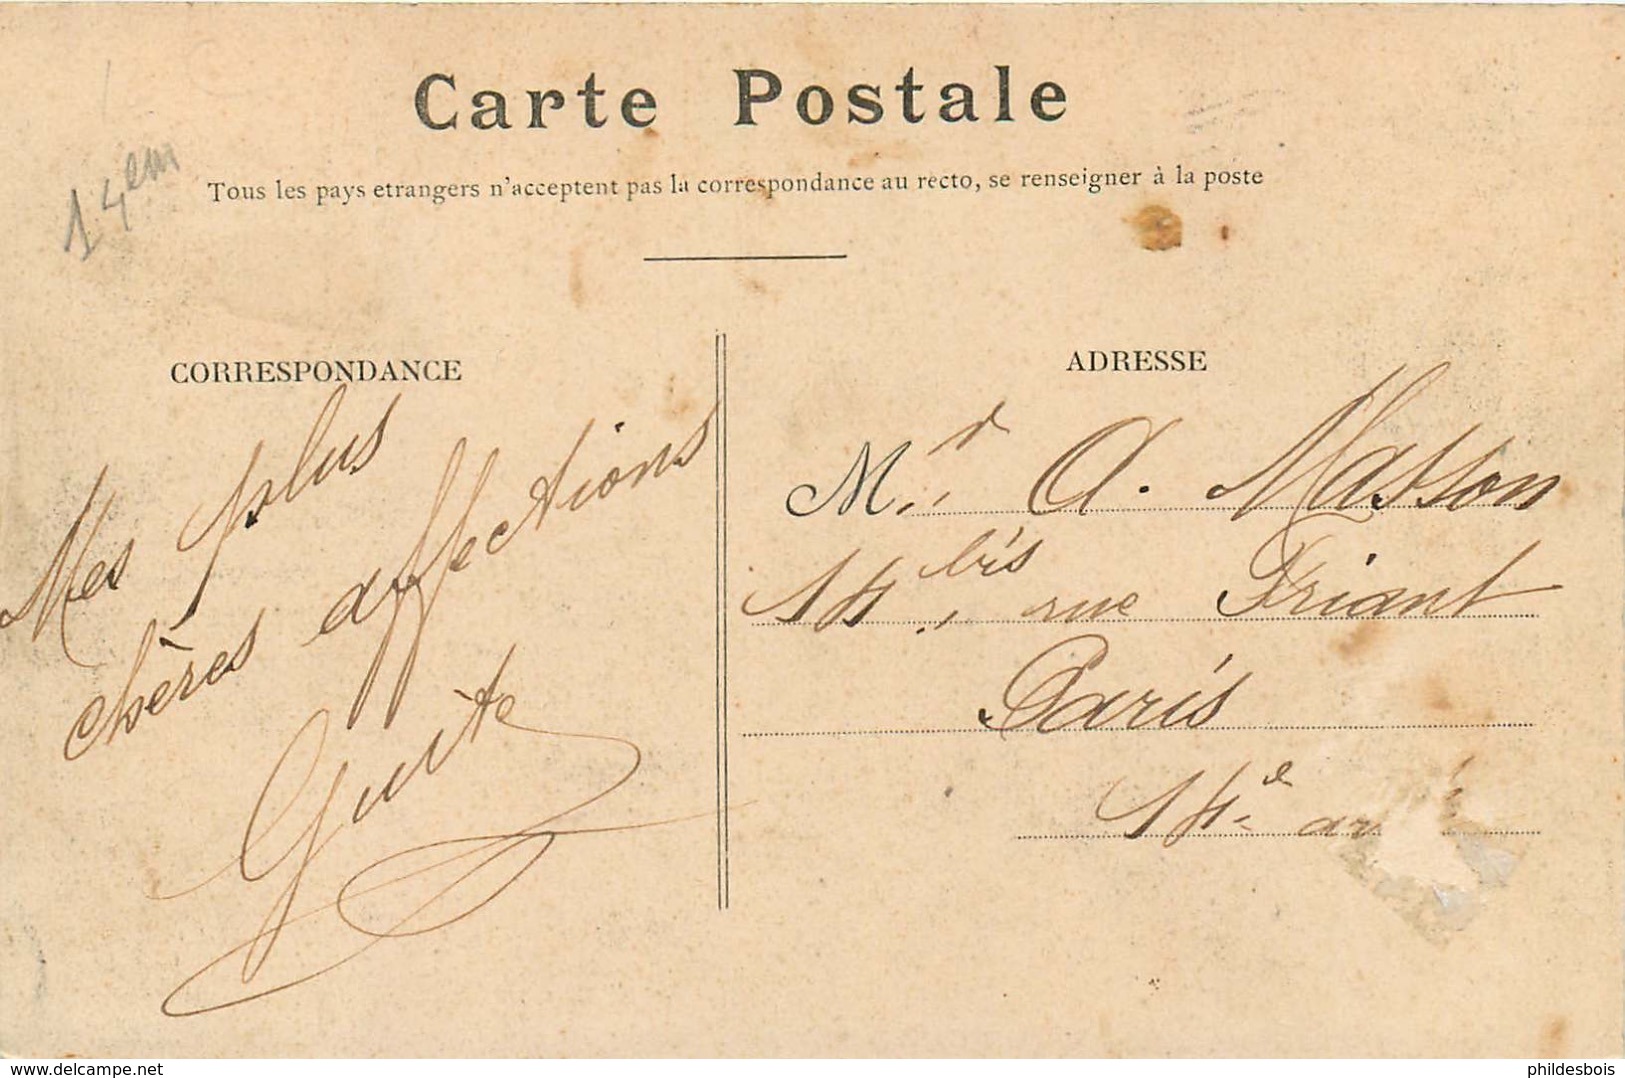 Carte Postale
14em
Tous les pays etrangers n'acceptent pas la correspondance au recto, se renseigner à la poste
CORRESPONDANCE
Mes plus
chères affections
Guite
ADRESSE
Mr. A. Masson
14 bis, rue Friant
Paris
14e
delcampe.net
phildesbois